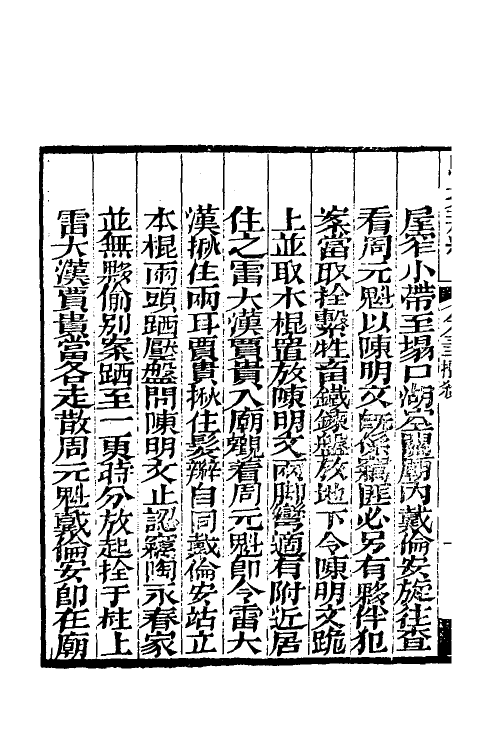 屋窄小帶至場口湖空關廟內戴倫安旋往查
看周元魁以陳明文旣係竊匪必另有夥伴犯
案當取拴繫牲畜鐵鍊盤放地下令陳明文跪
上並取木棍置放陳明文兩脚彎適有附近居
住之雷大漢賈貴入廟觀看周元魁卽令雷大
漢揪住兩耳賈貴揪住髮辮自同戴倫安站立
本棍兩頭跴壓盤問陳明文止認竊陶永春家
並無夥偷別案跴至一更時分放起拴于柱上
雷大漢賈貴當各走散周元魁戴倫安卽在廟